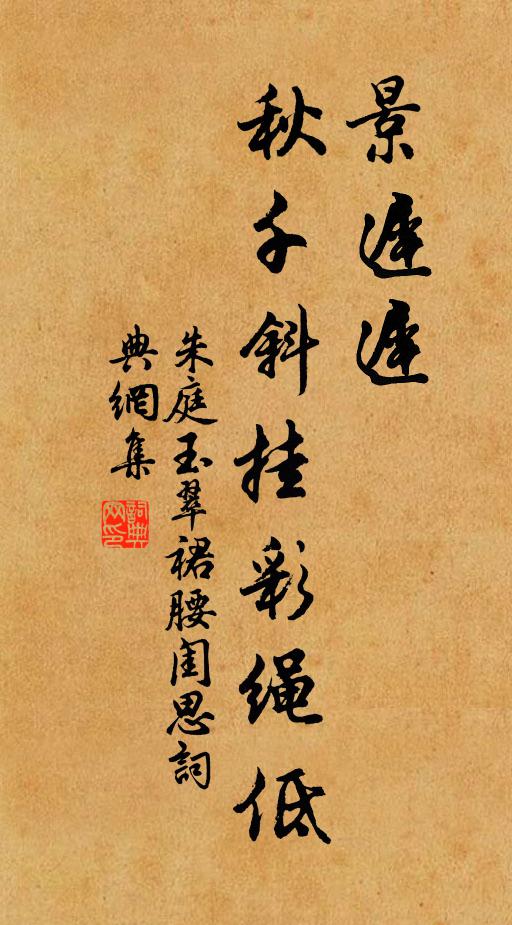 景遲遲
秋千斜挂彩绳低
朱庭玉翠裙腰闺思詞
典網集
詞典
网印